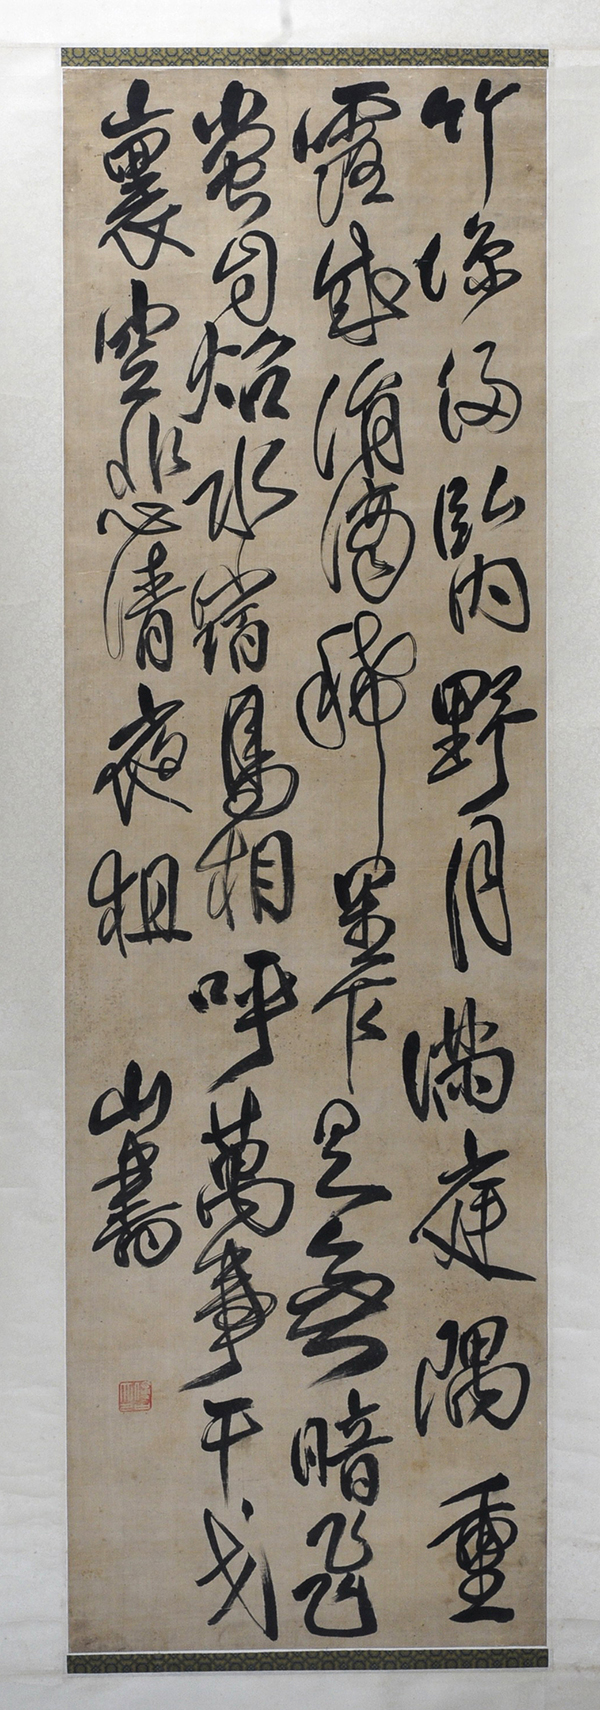 竹凉侵臥内野月滿庭隅重
露成涓滴稀星乍有無暗飛
螢自炤水宿鳥相呼萬事干戈
裏空悲清夜徂 山書